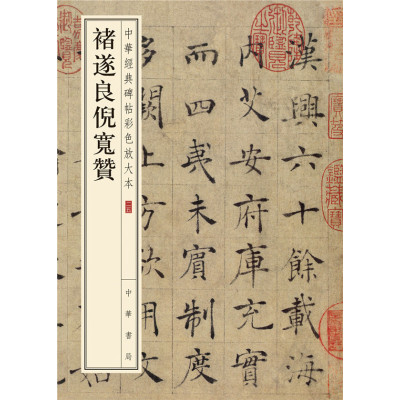 褚遂良倪寬贊
中華經典碑帖彩色放大本
中華書局
漢興六十餘載海
內艾安府庫充實
而四夷未賓制度
多闕上方欲用文